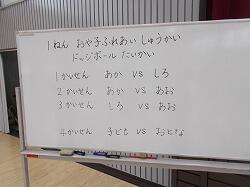 1ねん おや子ふれあい しゅうかい
ドッジボール たいかい
1かいせん あか VS しろ
2かいせん あか VS あお
3かいせん しろ VS あお
4かいせん 子ども VS おとな